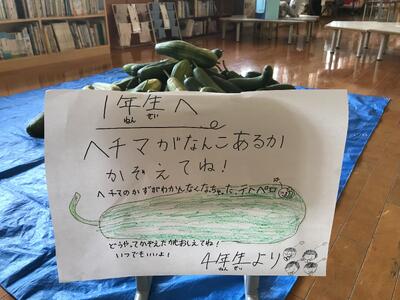 1年生へ
ねん せい
ヘチマがなんこあるか
かぞえてね!
ヘチマのかずがわかんなくなちゃった、テトペロ
どうやってかぞえたかおしえてね!
いつでもいいよ!
4年生より
ねん せい